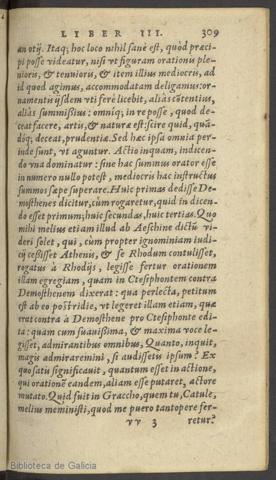 LIBER III. 309
an otij. Itaq; hoc loco nihil sanè est, quòd præci-
pi posse videatur, nisi vt figuram orationis ple-
nioris, & tenuioris, & item illius mediocris, ad
id quod agimus, accommodatam deligamus: or-
namentis ijsdem vti ferè licebit, aliàs cõtentius,
aliàs summissius: omniq; in re posse, quod de-
ceat facere, artis, & naturæ est: scire quid, quã-
doq; deceat, prudentiæ. Sed hæc ipsa omnia per-
inde sunt, vt aguntur. Actio inquam, indicen-
do vna dominatur: sine hac summus orator esse
in numero nullo potest, mediocris hac instructus
summos sæpe superare. Huic primas dedisse De-
mosthenes dicitur, cùm rogaretur, quid in dicen-
do esset primum; huic secundas, huic tertias. Quo
mihi melius etiam illud ab Aeschine dictũ vi-
deri solet, qui, cùm propter ignominiam iudi-
cij cessisset Athenis, & se Rhodum contulisset,
rogatus à Rhodijs, legisse fertur orationem
illam egregiam, quam in Ctesiphontem contra
Demosthenem dixerat: qua perlecta, petitum
est ab eo postridie, vt legeret illam etiam, quæ
erat contra à Demosthene pro Ctesiphonte edi-
ta: quam cum suauissima, & maxima voce le-
gisset, admirantibus omnibus, Quanto, inquit,
magis admiraremini, si audissetis ipsum? Ex
quo satis significauit, quantum esset in actione,
qui orationẽ eandem, aliam esse putaret, actore
mutato. Quid fuit in Graccho, quem tu, Catule,
melius meministi, quod me puero tantopere fer-
vv 3 retur?
Biblioteca de Galicia